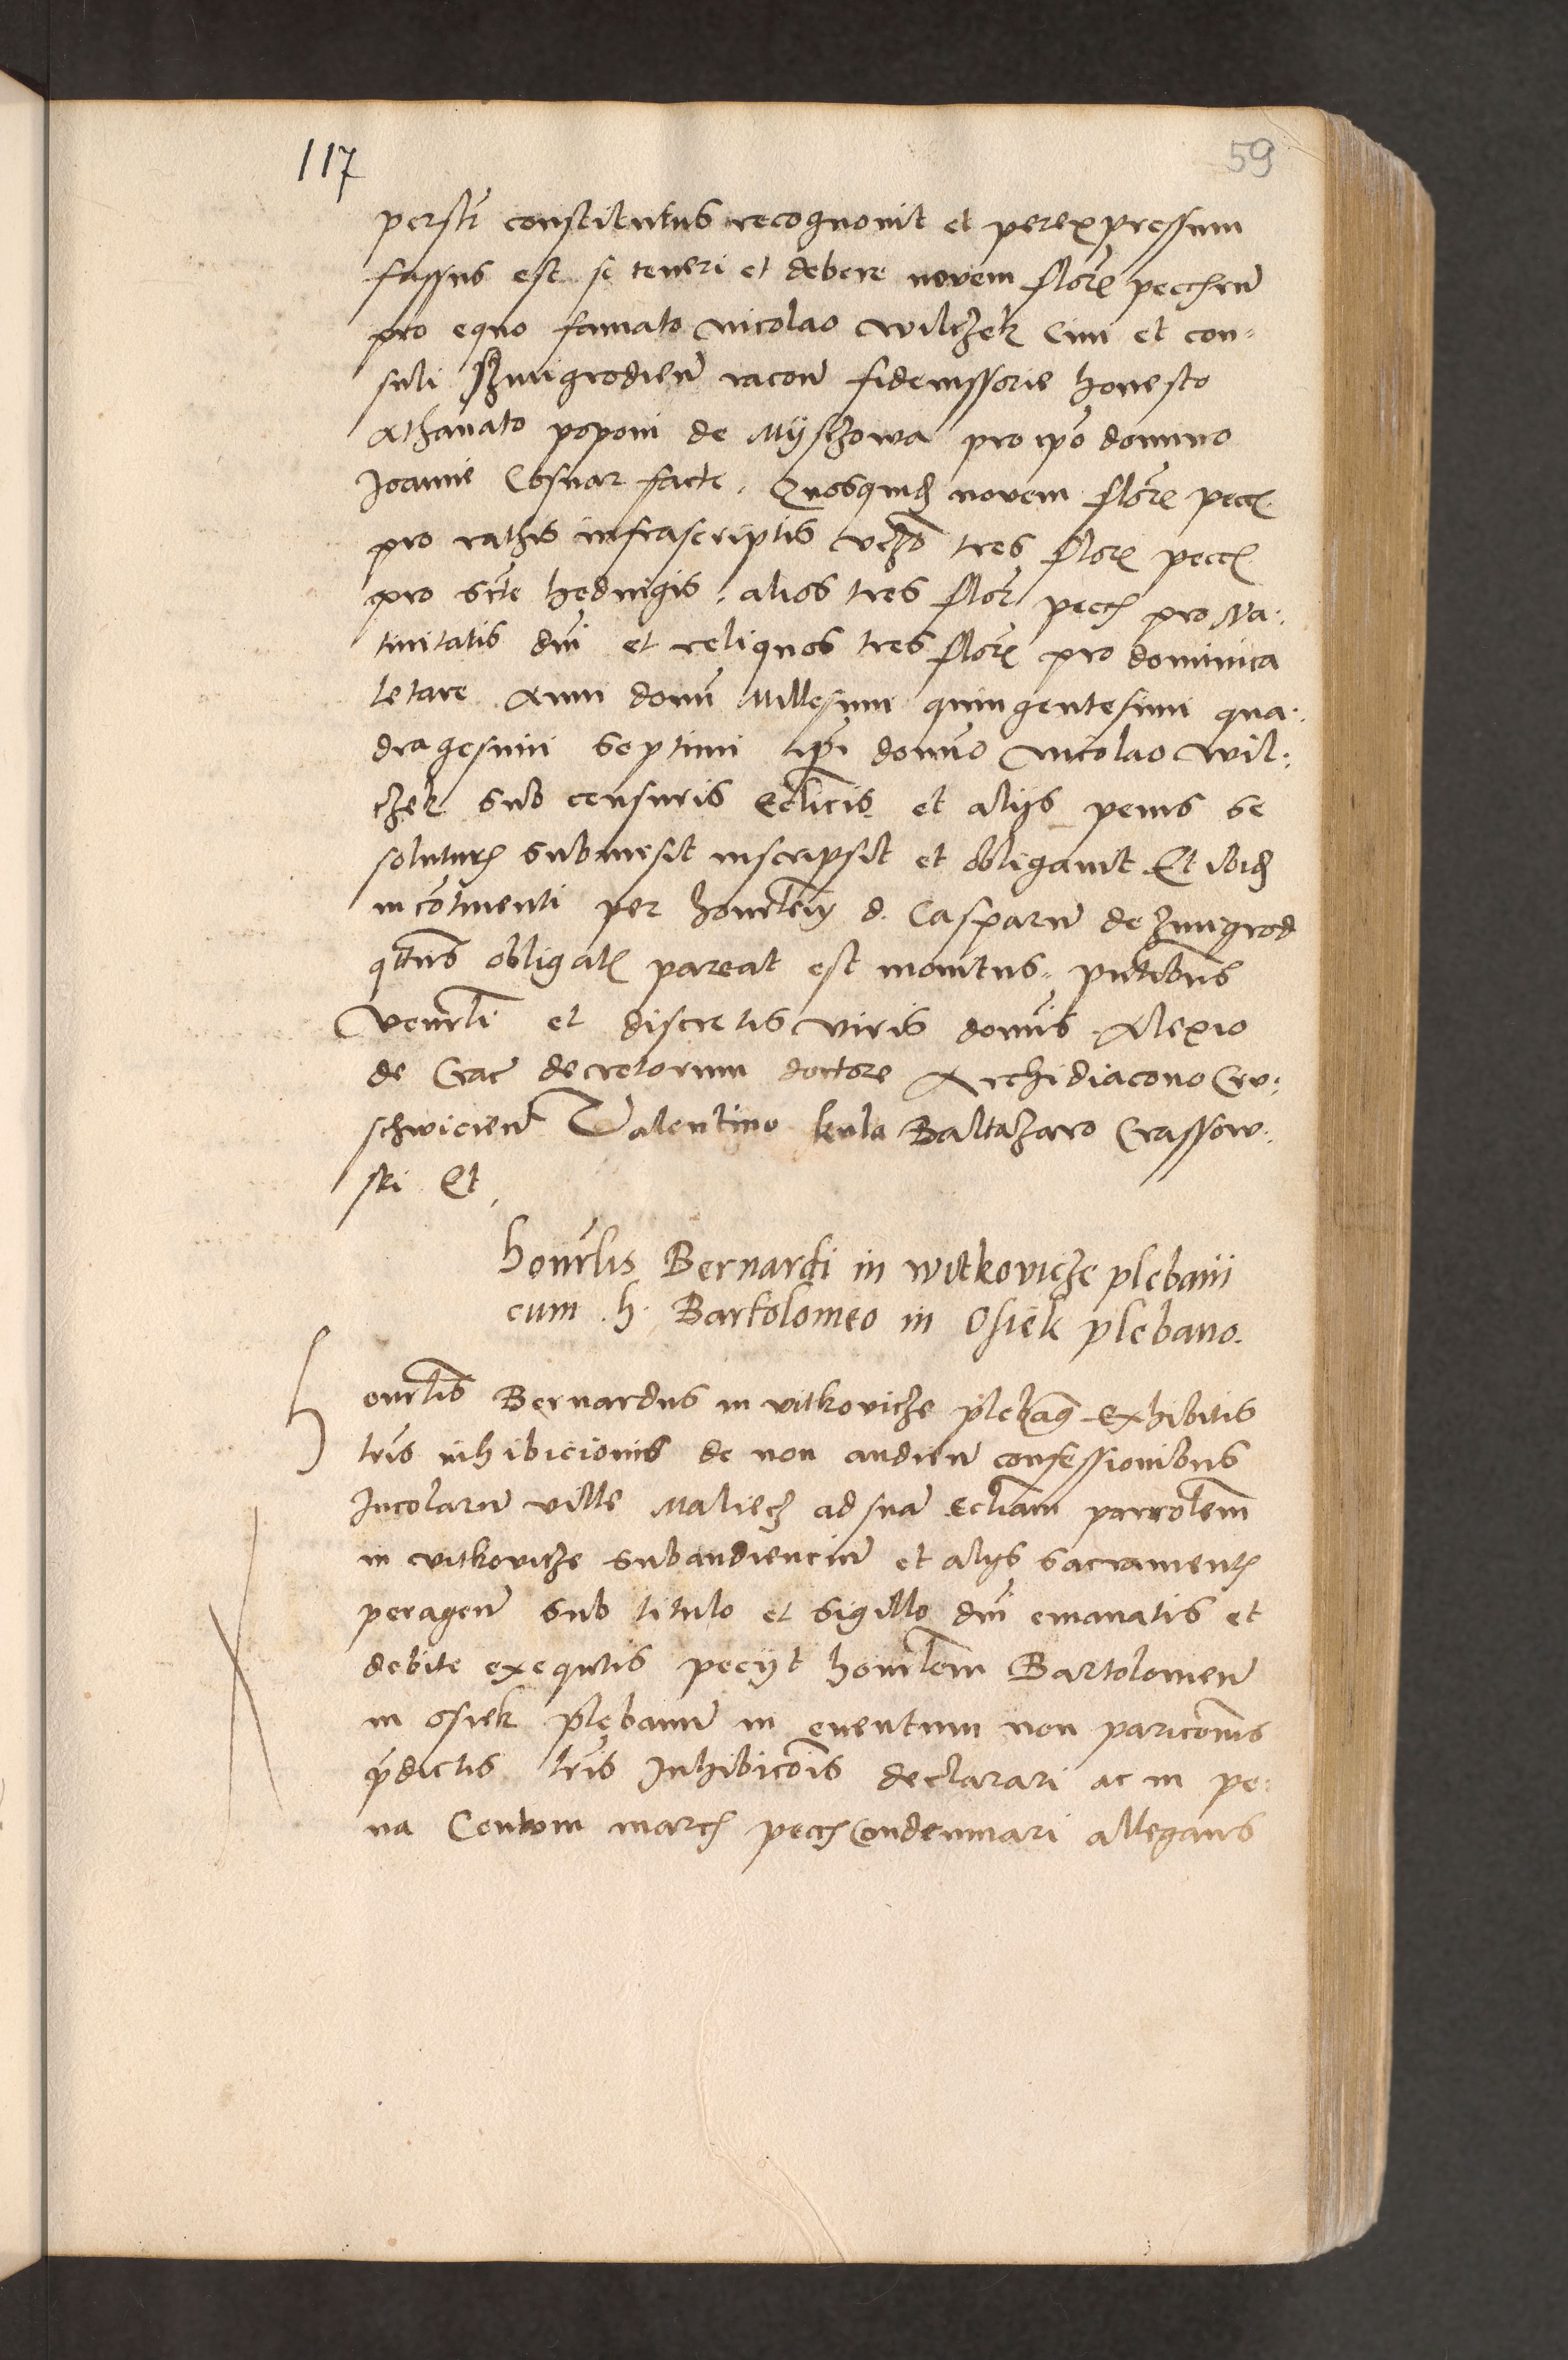 117
59
perslr constitutus recognovit et perexpressum
fassus est se teneri et debere novem flore pecchru
pro equo famato Nicolao Wilczek Civi et con-
suli Szmigrodien racon fideiussorie honesto
Athanato poponi de Myszowa pro ipo domino
Joanne Cosnar facte. Quosquid novem flore pecc.
pro rathis infrascriptis vczo tres flore pecc.
pro scte hedvigis. alios tres flore pecc pro Na-
tivitatis dni et reliquos tres flore pro dominica
letare Anni domi Millesimi quingentesimi qua-
dragesimi septimi ipi domno Nicolao Wil-
czek sub censuris ecclicis et alijs penis se
soluturu submisit inscripsit et obligavit Et ibid
incotinenti per honrlem d. Casparu de Zmigrod
qtus obligat pareat est monitus. pntibus
Venrli et discretis viris domis Alexio
de Crac decretorum doctore Archidiacono Cru-
schwicien Valentino kula Baltazaro Crassow-
ski Et
honrlis Bernardi in witkovicze plebani
cum h. Bartolomeo in Osiek plebano.
Honrlis Bernardus in vitkovicze plebanus exhibitis
lris inhibicionis de non audien confessionibus
Incolaru ville Maliecz ad sua eccliam parrolem
in vitkovicze subaudienciu et alijs sacrament
peragen sub titulo et sigillo dni emanatis et
debite exequtis pecijt honrlem Bartolomeu
in osiek plebanu in eventum non paricionis
pdictis lris Inhibicois declarari ac in pe-
na Centum march pecc Condemnari allegans